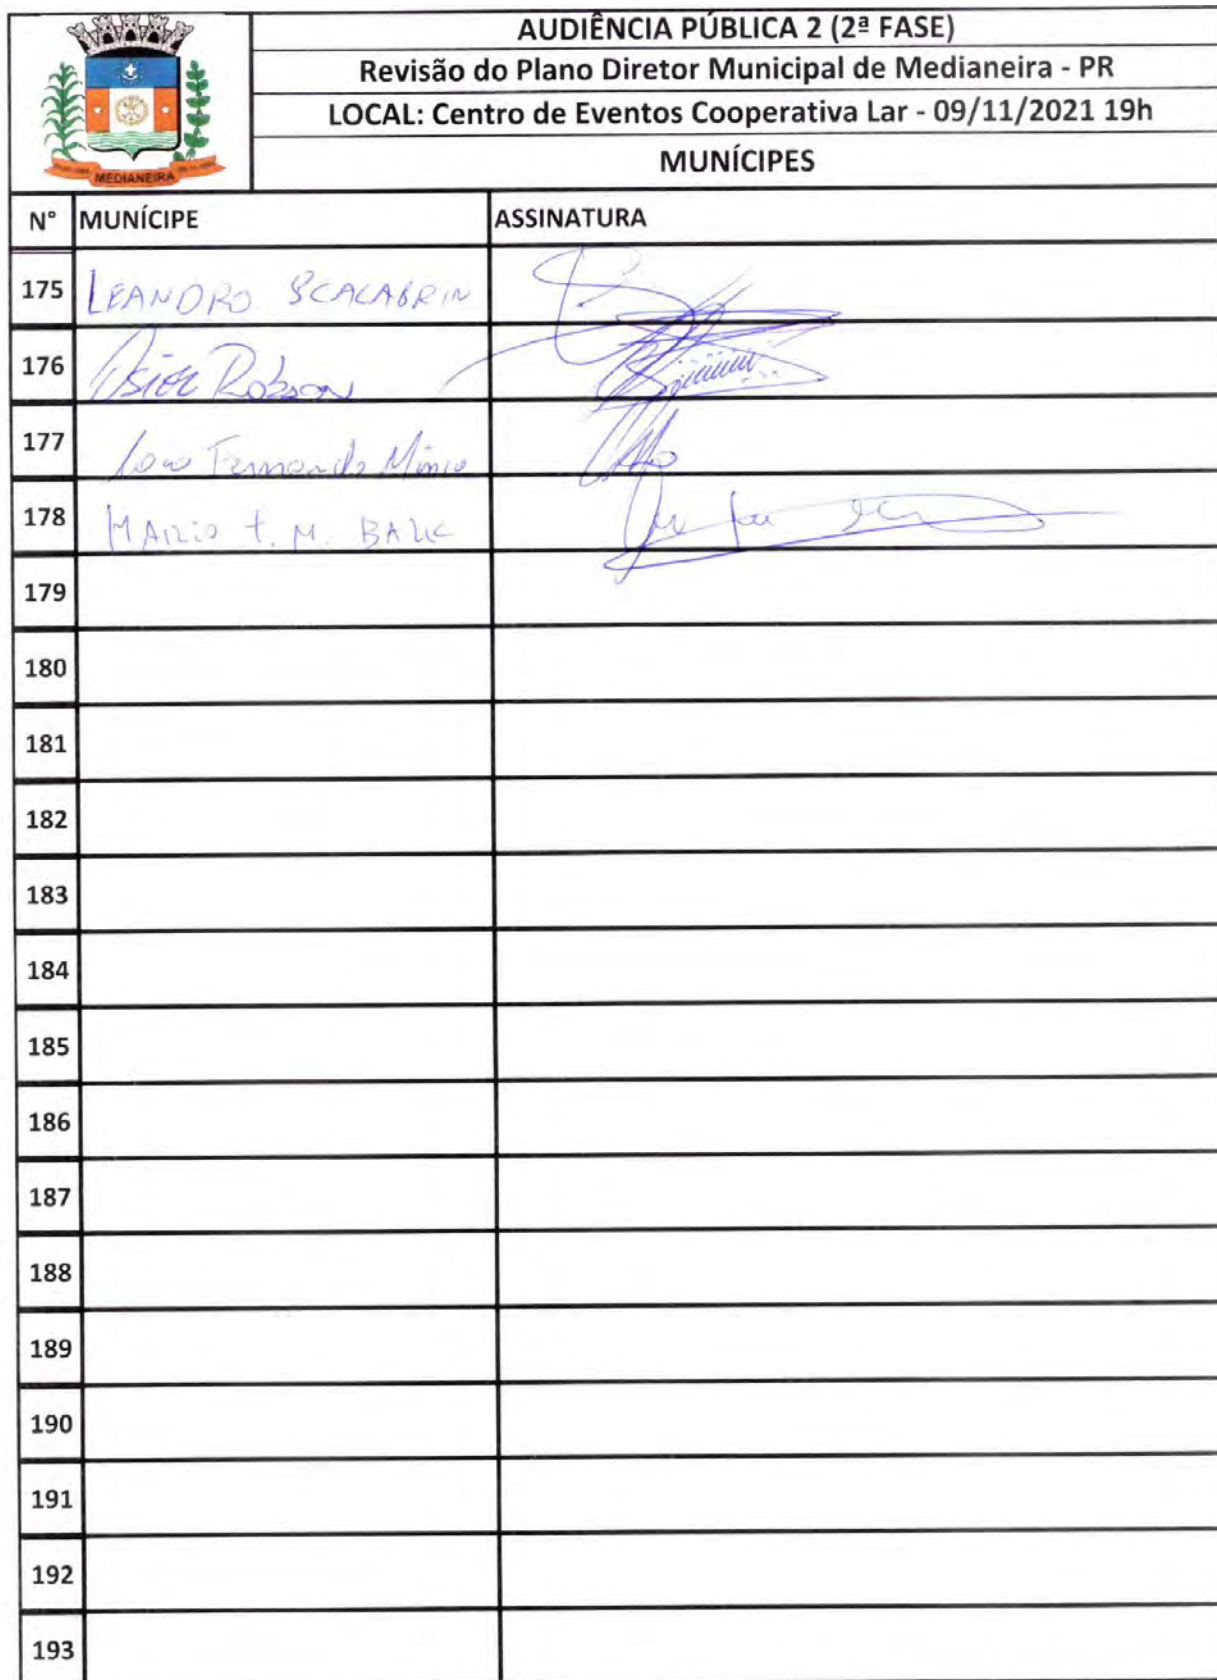 AUDIÊNCIA PÚBLICA 2 (2ª FASE)
Revisão do Plano Diretor Municipal de Medianeira - PR
LOCAL: Centro de Eventos Cooperativa Lar - 09/11/2021 19h
MUNÍCIPES
MEDIANEIRA
N° MUNÍCIPE ASSINATURA
175 LEANDRO SCALABRIN
176 Robson
177 Fernando
178 T. M.
179
180
181
182
183
184
185
186
187
188
189
190
191
192
193